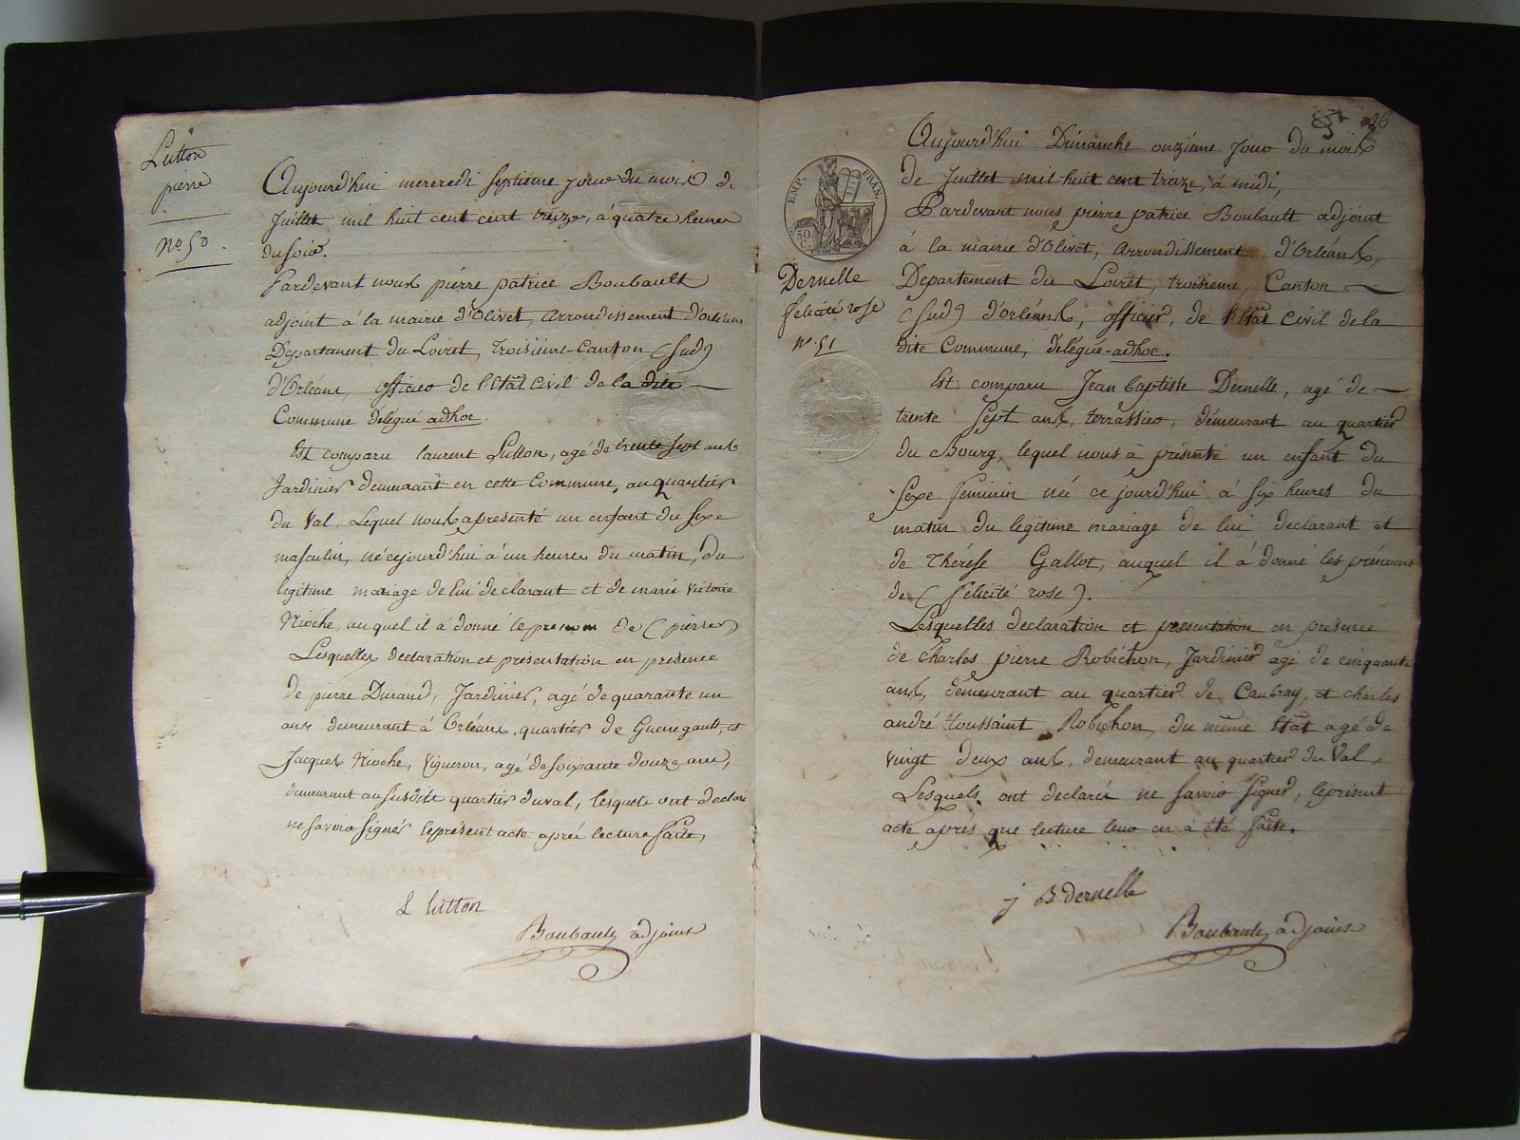 Lutton
pierre
no. 50.
Aujourd'hui mercredi septieme jour du mois de
Juillet mil huit cent cent treize, à quatre heures
du soir.
Pardevant nous pierre patrice Boubault
adjoint à la mairie d'Olivet, arrondissement d'orleans
Departement du Loiret, troisieme Canton (sud)
d'Orléans, officier de l'Etat Civil de la dite
Commune delégué adhoc.
Est comparu laurent Lutton, agé de trente sept ans
Jardinier demeurant en cette Commune, au quartier
du Val, Lequel nous a presenté un enfant du sexe
masculin, né cejourd'hui à un heures du matin, du
legitime mariage de lui declarant et de marie victoire
Nioche, auquel il a donné le prenom de (pierre)
Lesquelles declaration et présentation en presence
de pierre Durand, Jardinier, agé de quarante un
ans demeurant à Orléans, quartier de Guenegault, et
Jacques Nioche, vigneron, agé de soixante douze ans,
demeurant au susdit quartier du val, lesquels ont declaré
ne savoir signer le présent acte après lecture faite,
L lutton
Boubault adjoint
26
EMP. FRAN.
50
Dernelle
felicité rose
no. 51
Aujourd'hui Dimanche onzième jour du mois
de Juillet mil huit cent treize, à midi,
Pardevant nous pierre patrice Boubault adjoint
à la mairie d'Olivet, arrondissement d'Orléans,
Departement du Loiret, troisieme Canton
(sud) d'orléans, officier, de l'Etat Civil de la
dite Commune, délégué adhoc.
Est comparu Jean baptiste Dernelle, agé de
trente sept ans, terrassier, démeurant au quartier
du Bourg, lequel nous à présenté un enfant du
sexe feminin née ce jourd'hui à six heures du
matin du legitime mariage de lui declarant et
de Thérése Gallot, auquel il à donné les prénoms
de (felicité rose).
Lesquelles declaration et présentation en présence
de Charles pierre Robichon, Jardinier agé de cinquante
ans, demeurant au quartier de Caubray, et charles
andré toussaint Robichon, du même Etat agé de
vingt deux ans, demeurant au quartier du Val,
Lesquels ont declaré ne savoir signer, le présent
acte après que lecture leur en à été faite.
j B dernelle
Boubault adjoint